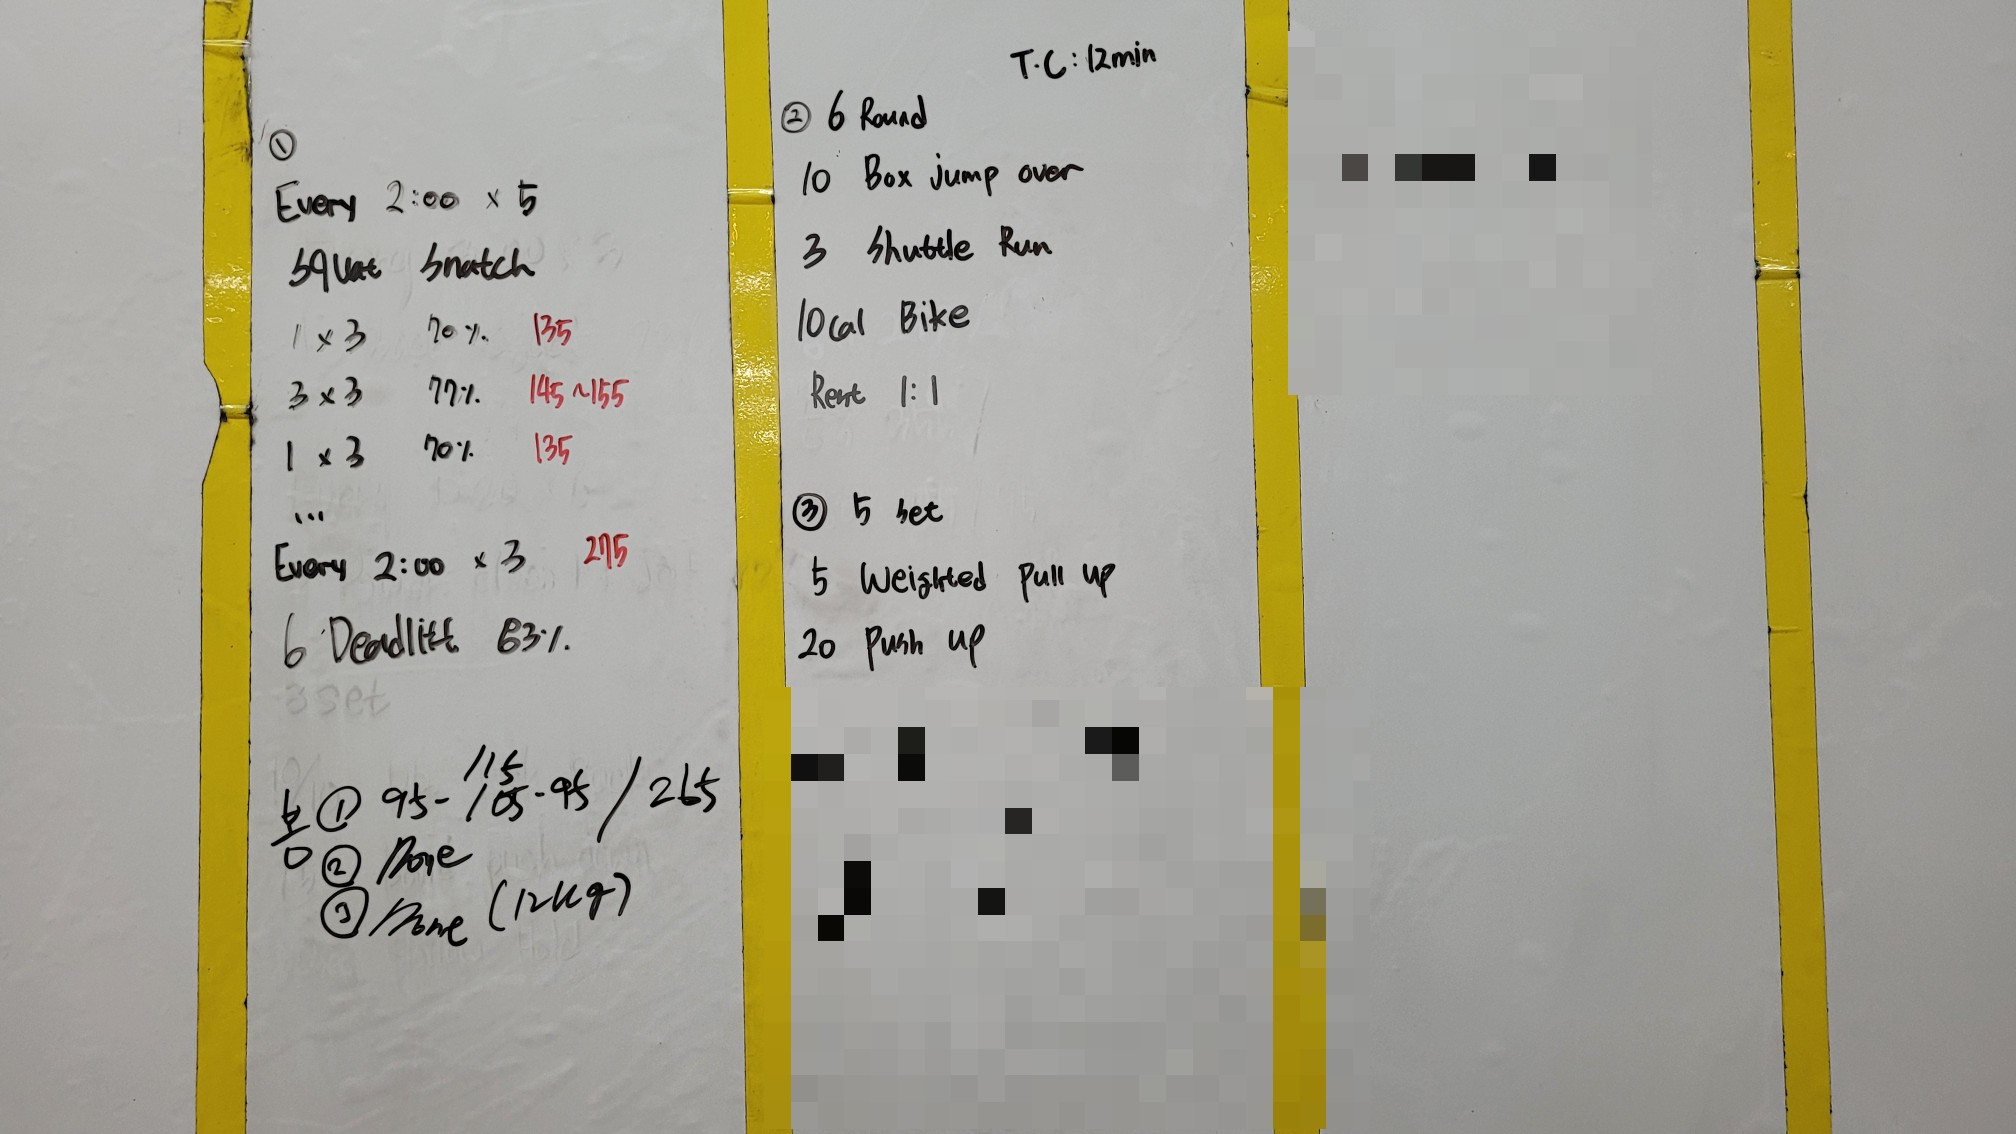 ①
Every 2:00 × 5
Squat Snatch
1 × 3 70% 135
3 × 3 77% 145~155
1 × 3 70% 135
...
Every 2:00 × 3 275
6 Deadlift 63%
3 set
115
① 95-105-95 / 265
② Done
③ Done (12kg)
T.C: 12min
② 6 Round
10 Box jump over
3 Shuttle Run
10cal Bike
Rest 1:1
③ 5 set
5 Weighted pull up
20 push up